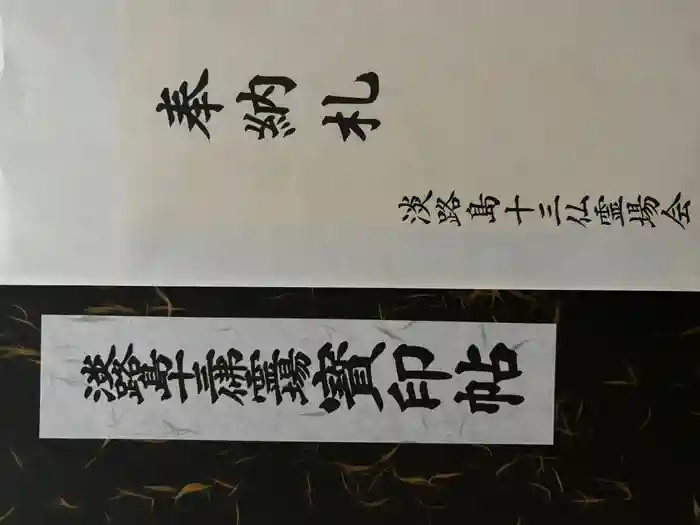 奉納札
淡路島十三仏霊場会
淡路島十三佛霊場寳印帖